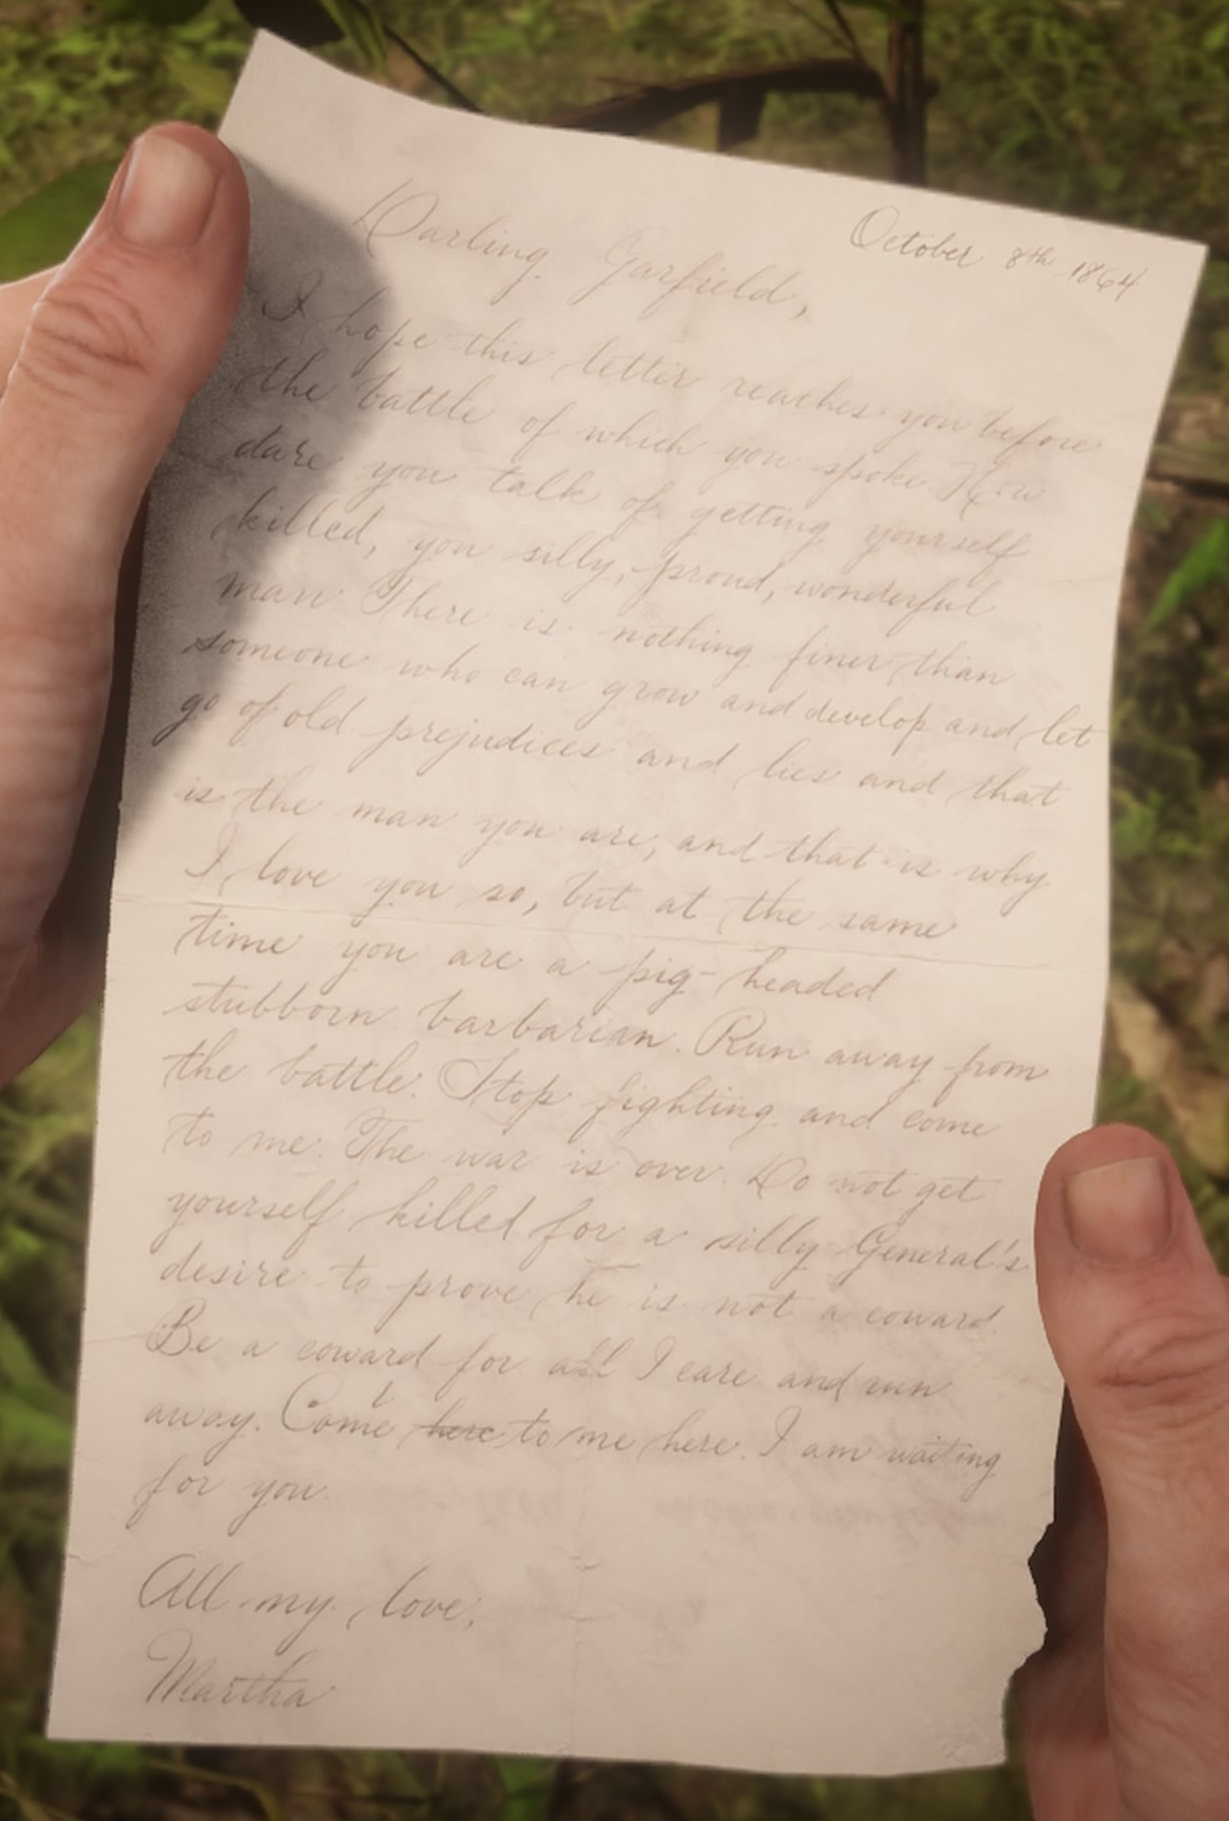 October 8th 1864
Darling Garfield,
I hope this letter reaches you before
the battle of which you spoke How
dare you talk of getting yourself
killed, you silly, proud, wonderful
man There is nothing finer than
someone who can grow and develop and let
go of old prejudices and lies and that
is the man you are, and that is why
I love you so, but at the same
time you are a pig-headed
stubborn barbarian. Run away from
the battle. Stop fighting and come
to me. The war is over. Do not get
yourself killed for a silly General's
desire to prove he is not a coward.
Be a coward for all I care and run
away. Come here to me here. I am waiting
for you.
All my love,
Martha